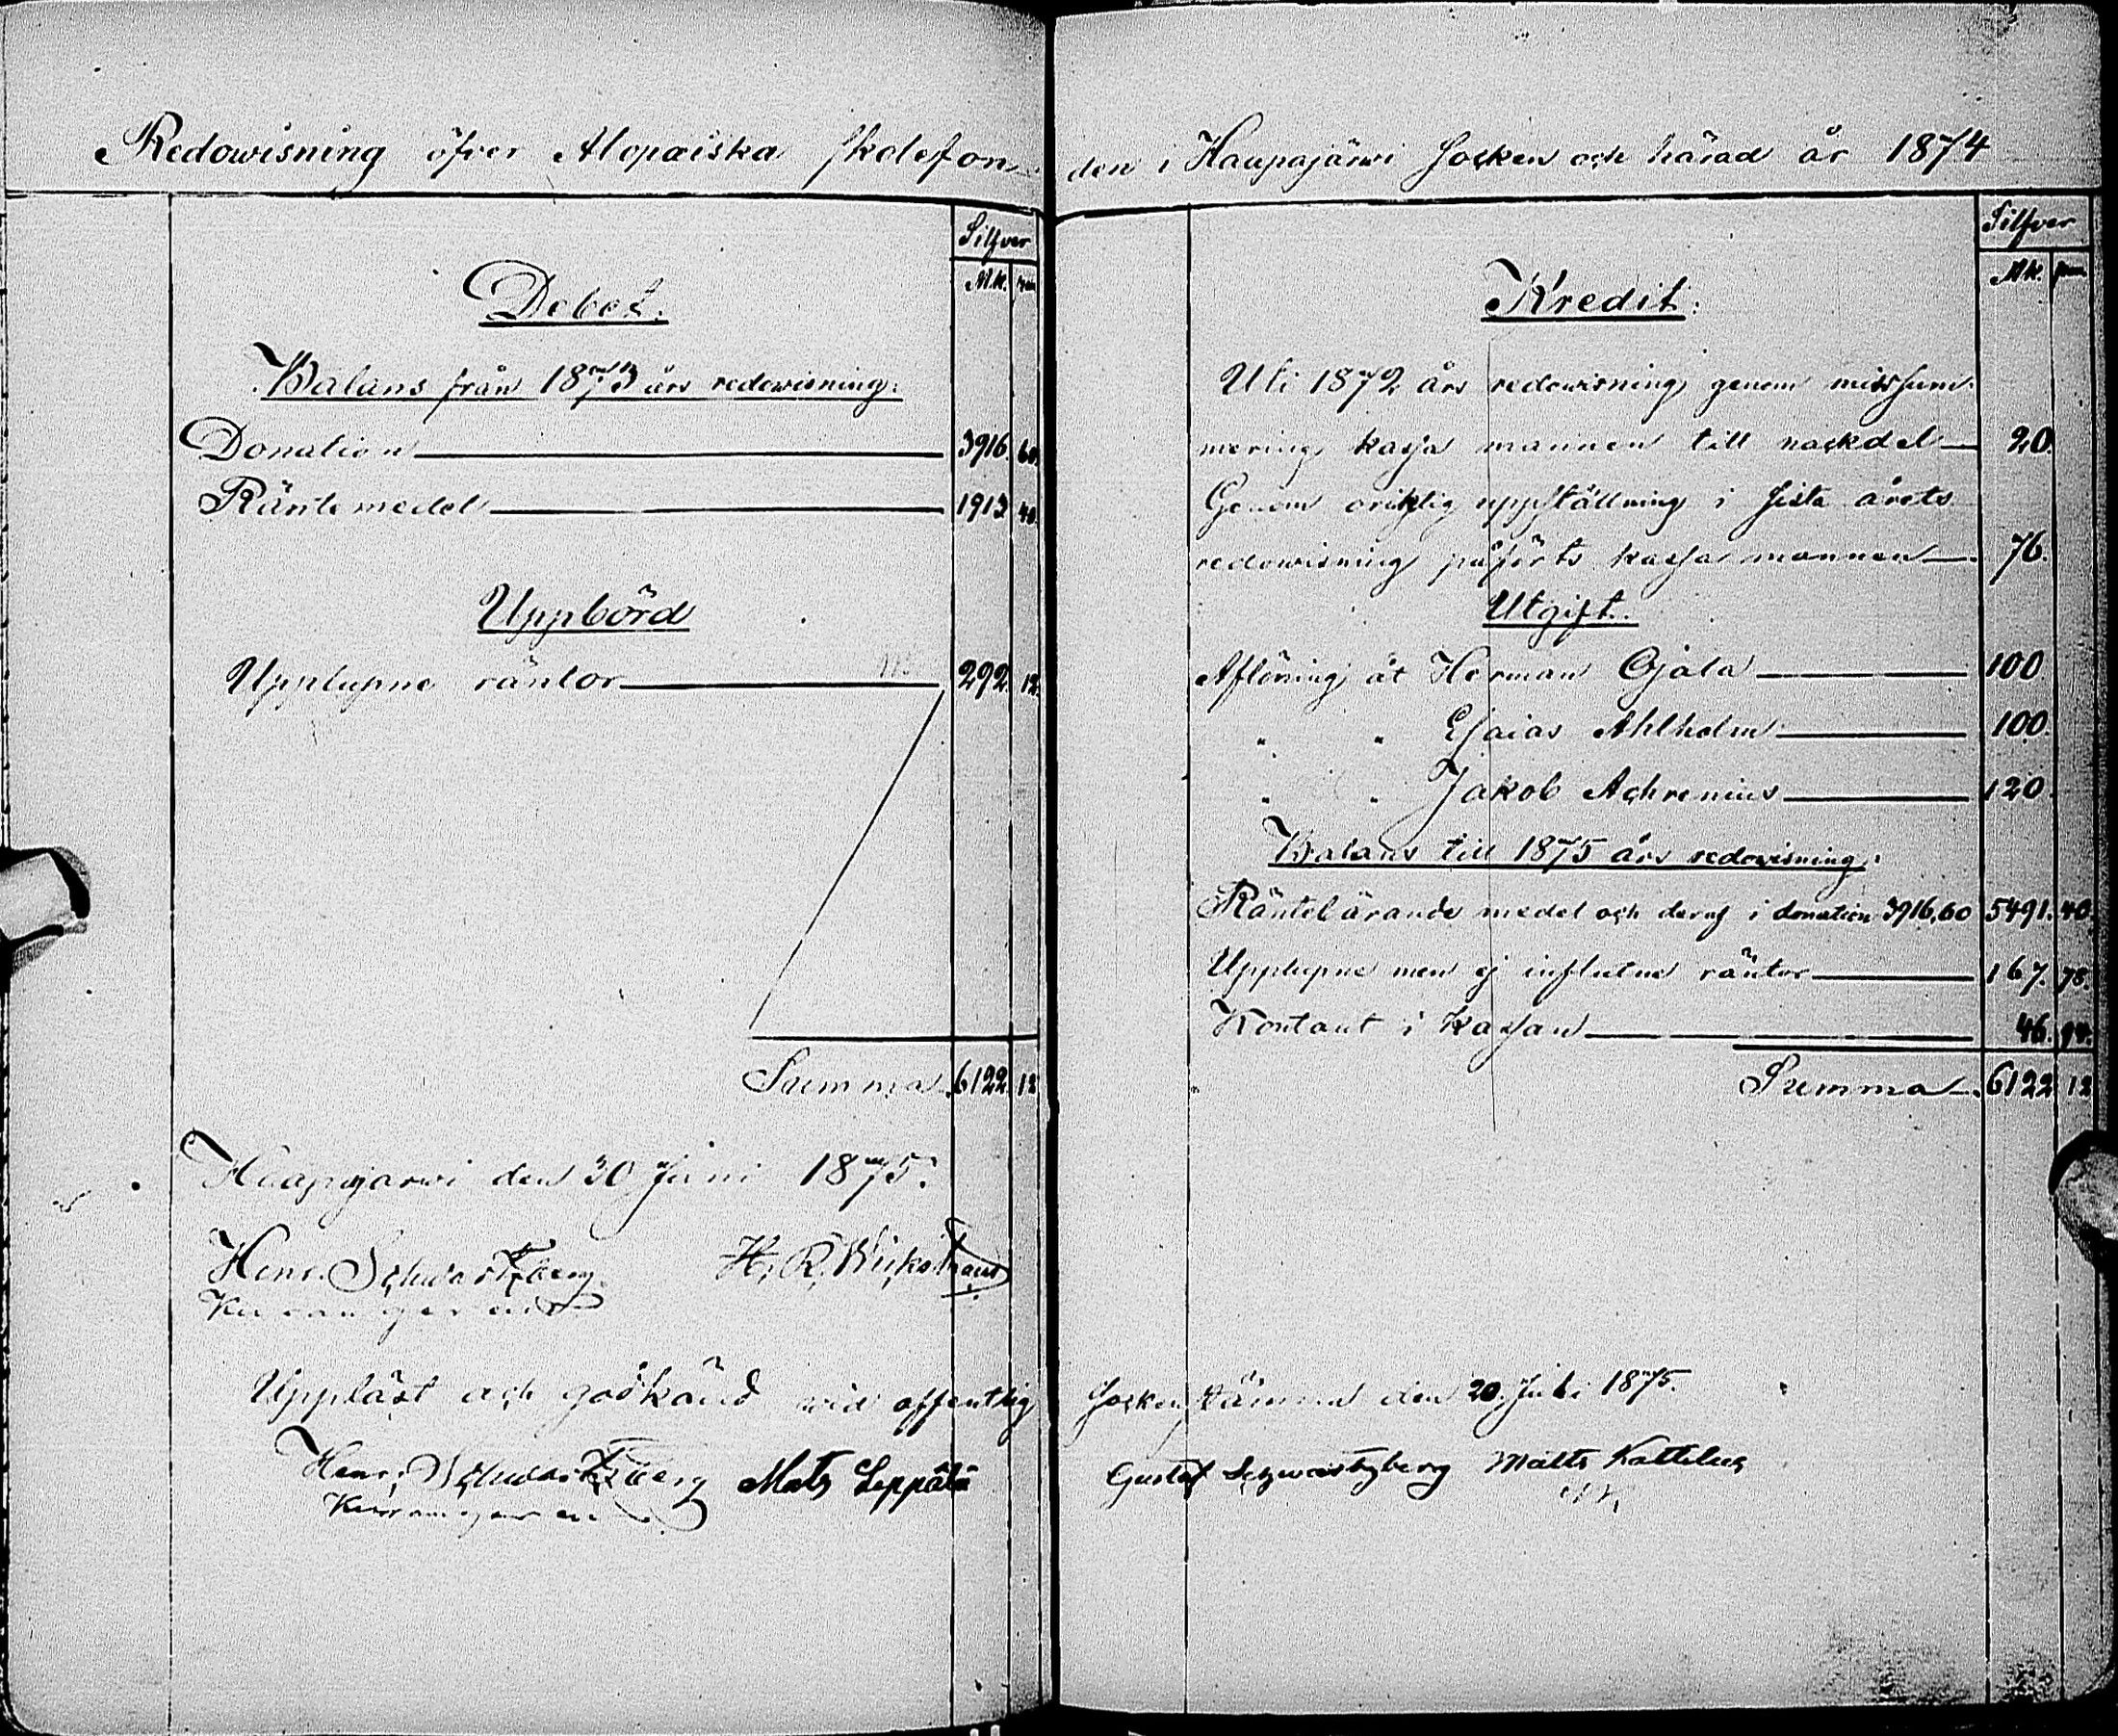 Redowisning öfver Alopæiska skolefon
den i Haapajärwi Socken och härad år 1874
Silfver
Mk. pen
Debet.
Balans från 1873 års redowisning.
Donation 3916. 60.
Räntemedel 1913 40.
Uppbörd
Upplupne räntor 292. 12.
Summa 6122. 12
Haapajärwi den 30 Juni 1875.
Henr. Schwartzberg H. R. Wickstrand
Upplåst och godkänd wid offentlig
Henr. Schwartzberg Mats Leppälä
Silfver
Mk. pen
Kredit.
Uti 1872 års redowisning genom missum-
mering kassa mannen till nackdel 20.
Genom oriktig uppställning i sista årets
redowisning påförts kassa mannen 76.
Utgift.
Aflöning åt Herman Ojala 100
" " Esaias Ahlholm 100.
" " Jakob Achrenius 120
Balans till 1875 års redowisning.
Räntebärande medel och deraf i donation 3916,60 5491. 40.
Upplupne men ej influtne räntor 167. 78.
Kontant i kassan 46. 94.
Summa 6122 12
Sockenstämma den 20 Juli 1875.
Gustaf Schwartzberg Matts Kattilus